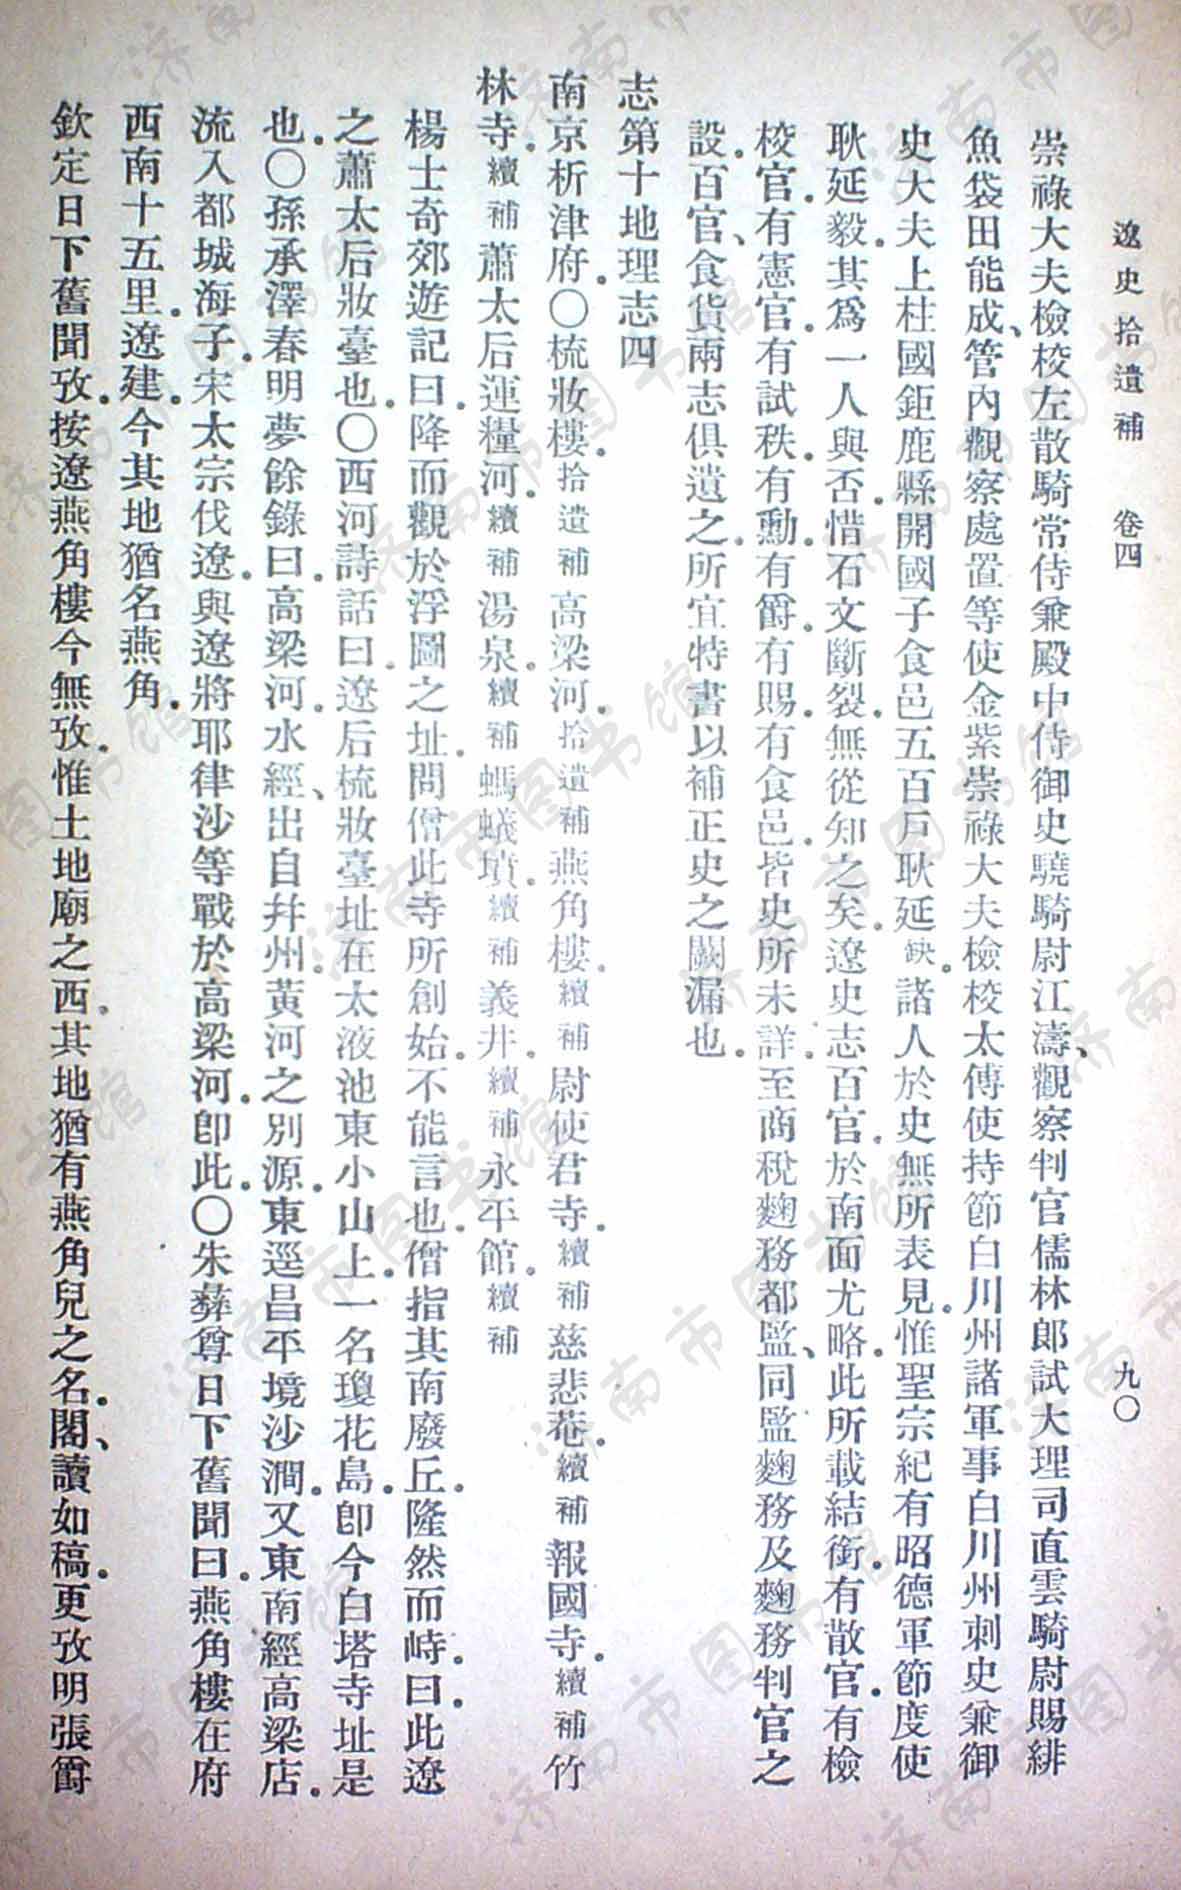 遼史拾遺補　卷四　九〇
崇祿大夫檢校左散騎常侍兼殿中侍御史驍騎尉江濤、觀察判官儒林郎試大理司直雲騎尉賜緋
魚袋田能成、管內觀察處置等使金紫崇祿大夫檢校太傅使持節白川州諸軍事白川州刺史兼御
史大夫上柱國鉅鹿縣開國子食邑五百戶耿延缺。諸人於史無所表見。惟聖宗紀有昭德軍節度使
耿延毅。其爲一人與否。惜石文斷裂。無從知之矣。遼史志百官。於南面尤略。此所載結銜。有散官。有檢
校官。有憲官。有試秩。有勳。有爵。有賜。有食邑。皆史所未詳。至商稅麴務都監、同監麴務及麴務判官之
設。百官、食貨兩志俱遺之。所宜特書以補正史之闕漏也。
志第十地理志四
南京析津府。〇梳妝樓。拾遺補高梁河。拾遺補燕角樓。續補尉使君寺。續補慈悲菴。續補報國寺。續補竹
林寺。續補蕭太后運糧河。續補湯泉。續補螞蟻墳。續補義井。續補永平館。續補
楊士奇郊遊記曰。降而觀於浮圖之址。問僧此寺所創始。不能言也。僧指其南廢丘。隆然而峙。曰。此遼
之蕭太后妝臺也。〇西河詩話曰。遼后梳妝臺址在太液池東小山上。一名瓊花島。卽今白塔寺址是
也。〇孫承澤春明夢餘錄曰。高梁河。水經、出自幷州。黃河之別源。東逕昌平境沙澗。又東南經高梁店。
流入都城海子。宋太宗伐遼。與遼將耶律沙等戰於高梁河。卽此。〇朱彝尊日下舊聞曰。燕角樓在府
西南十五里。遼建。今其地猶名燕角。
欽定日下舊聞攷。按遼燕角樓今無攷。惟土地廟之西。其地猶有燕角兒之名。閣、讀如稿。更攷明張爵